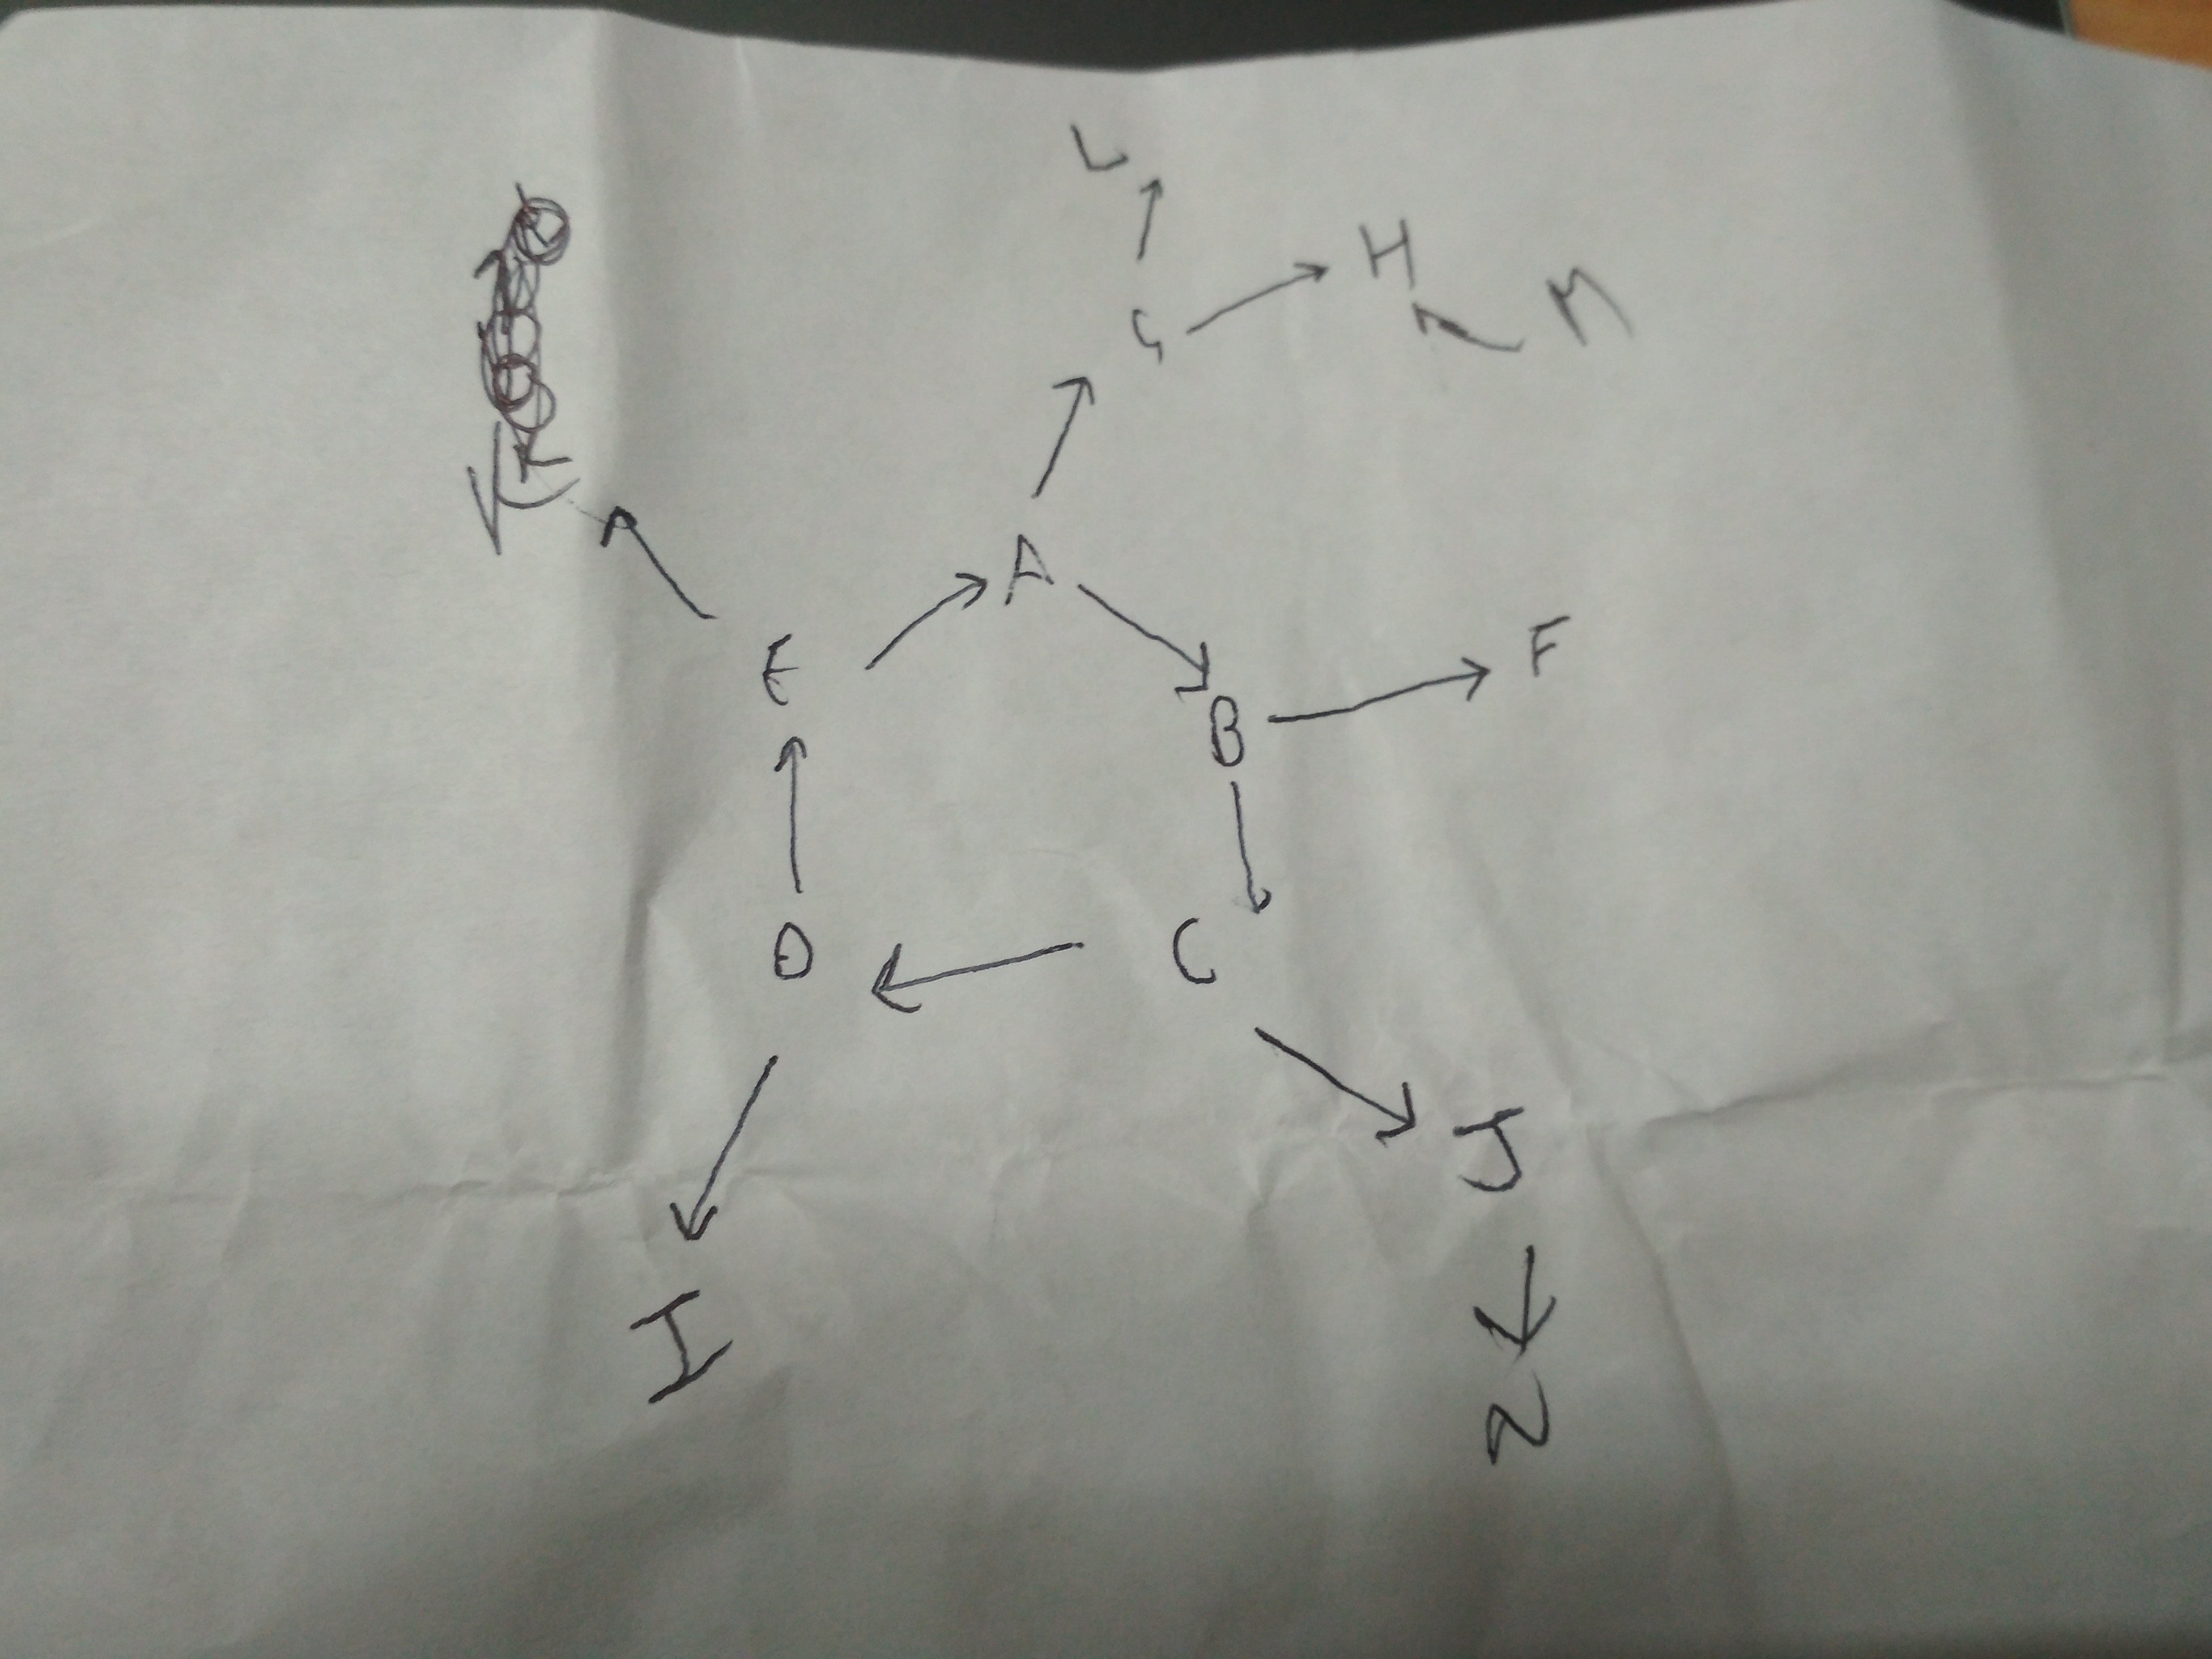 L
H M
G
K
A
E F
B
D C
J
I
N